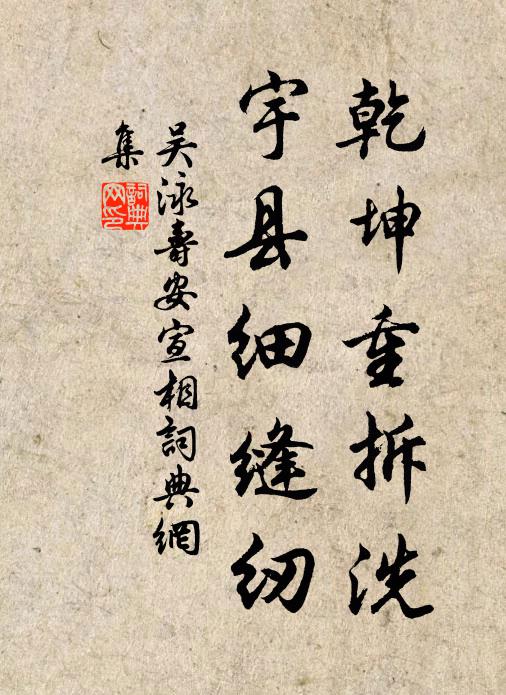 乾坤重拆洗
宇县细缝纫
吴泳寿安宣相词典網
集
詞典
网印